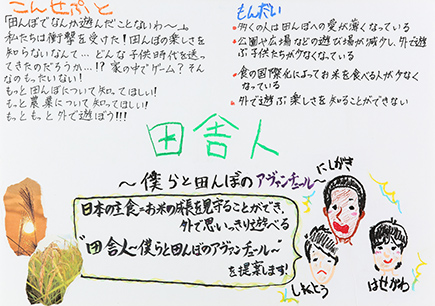 こんせぷと
「田んぼでなんか遊んだことないわ〜」
私たちは衝撃を受けた！田んぼの楽しさを
知らないなんて… どんな子供時代を送っ
てきたのだろうか…！？ 家の中でゲーム？そん
なのもったいない！
もっと田んぼについて知ってほしい！
もっと農業について知ってほしい！
もっともっと外で遊ぼう!!!
もんだい
・多くの人は田んぼへの愛が薄くなっている
・公園や広場などの遊び場が減少し、外で遊
ぶ子供たちが少なくなっている
・食の国際化によってお米を食べる人が少なく
なっている
・外で遊ぶ楽しさを知ることができない
田舎人
〜僕らと田んぼのアヴァンチュール〜
日本の主食=お米の成長を見守ることができ、
外で思いっきり遊べる
"田舎人〜僕らと田んぼのアヴァンチュール〜"
を提案します！
にしがき
しんとう
はせがわ